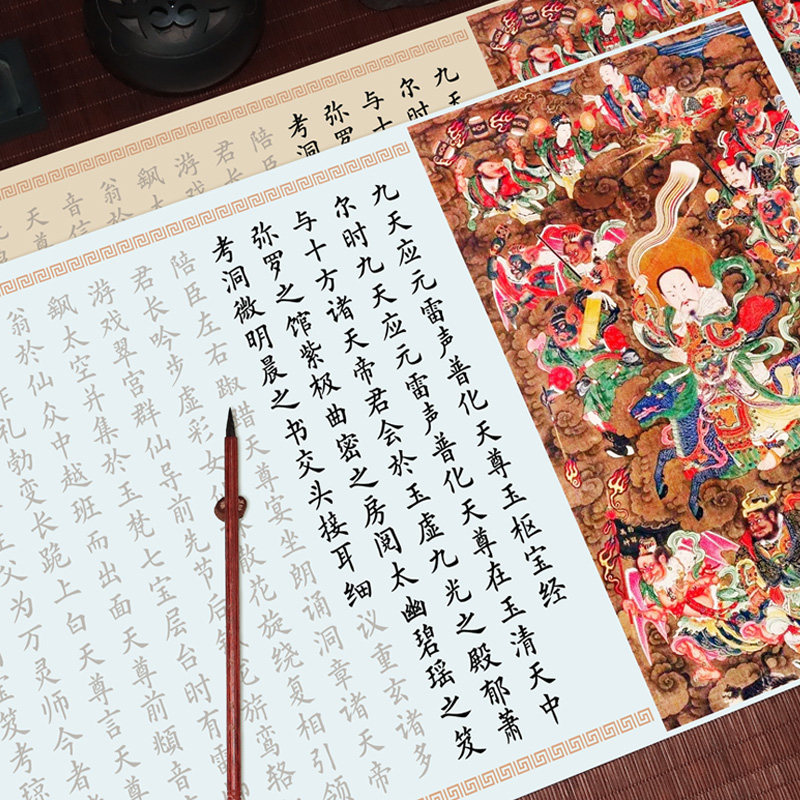 九天
尔
与十
弥罗
考洞
陪臣
君长
游戏
飘太
翁於
天尊
九天应元雷声普化天尊玉枢宝经
尔时九天应元雷声普化天尊在玉清天中
与十方诸天帝君会於玉虚九光之殿郁萧
弥罗之馆紫极曲密之房阅太幽碧瑶之笈
考洞微明晨之书交头接耳细议重玄诸多
陪臣左右踧踖天尊宴坐朗诵洞章诸天帝
君长吟步虚彩女仙散花旋绕复相引领
游戏翠宫群仙导前先节后钺龙旂鸾辂
飘太空并集於玉梵七宝层台时有雷
翁於仙众中越班而出面天尊前頫音
作礼勃变长跪上白天尊言天尊
父为万灵师今者
笈考琼